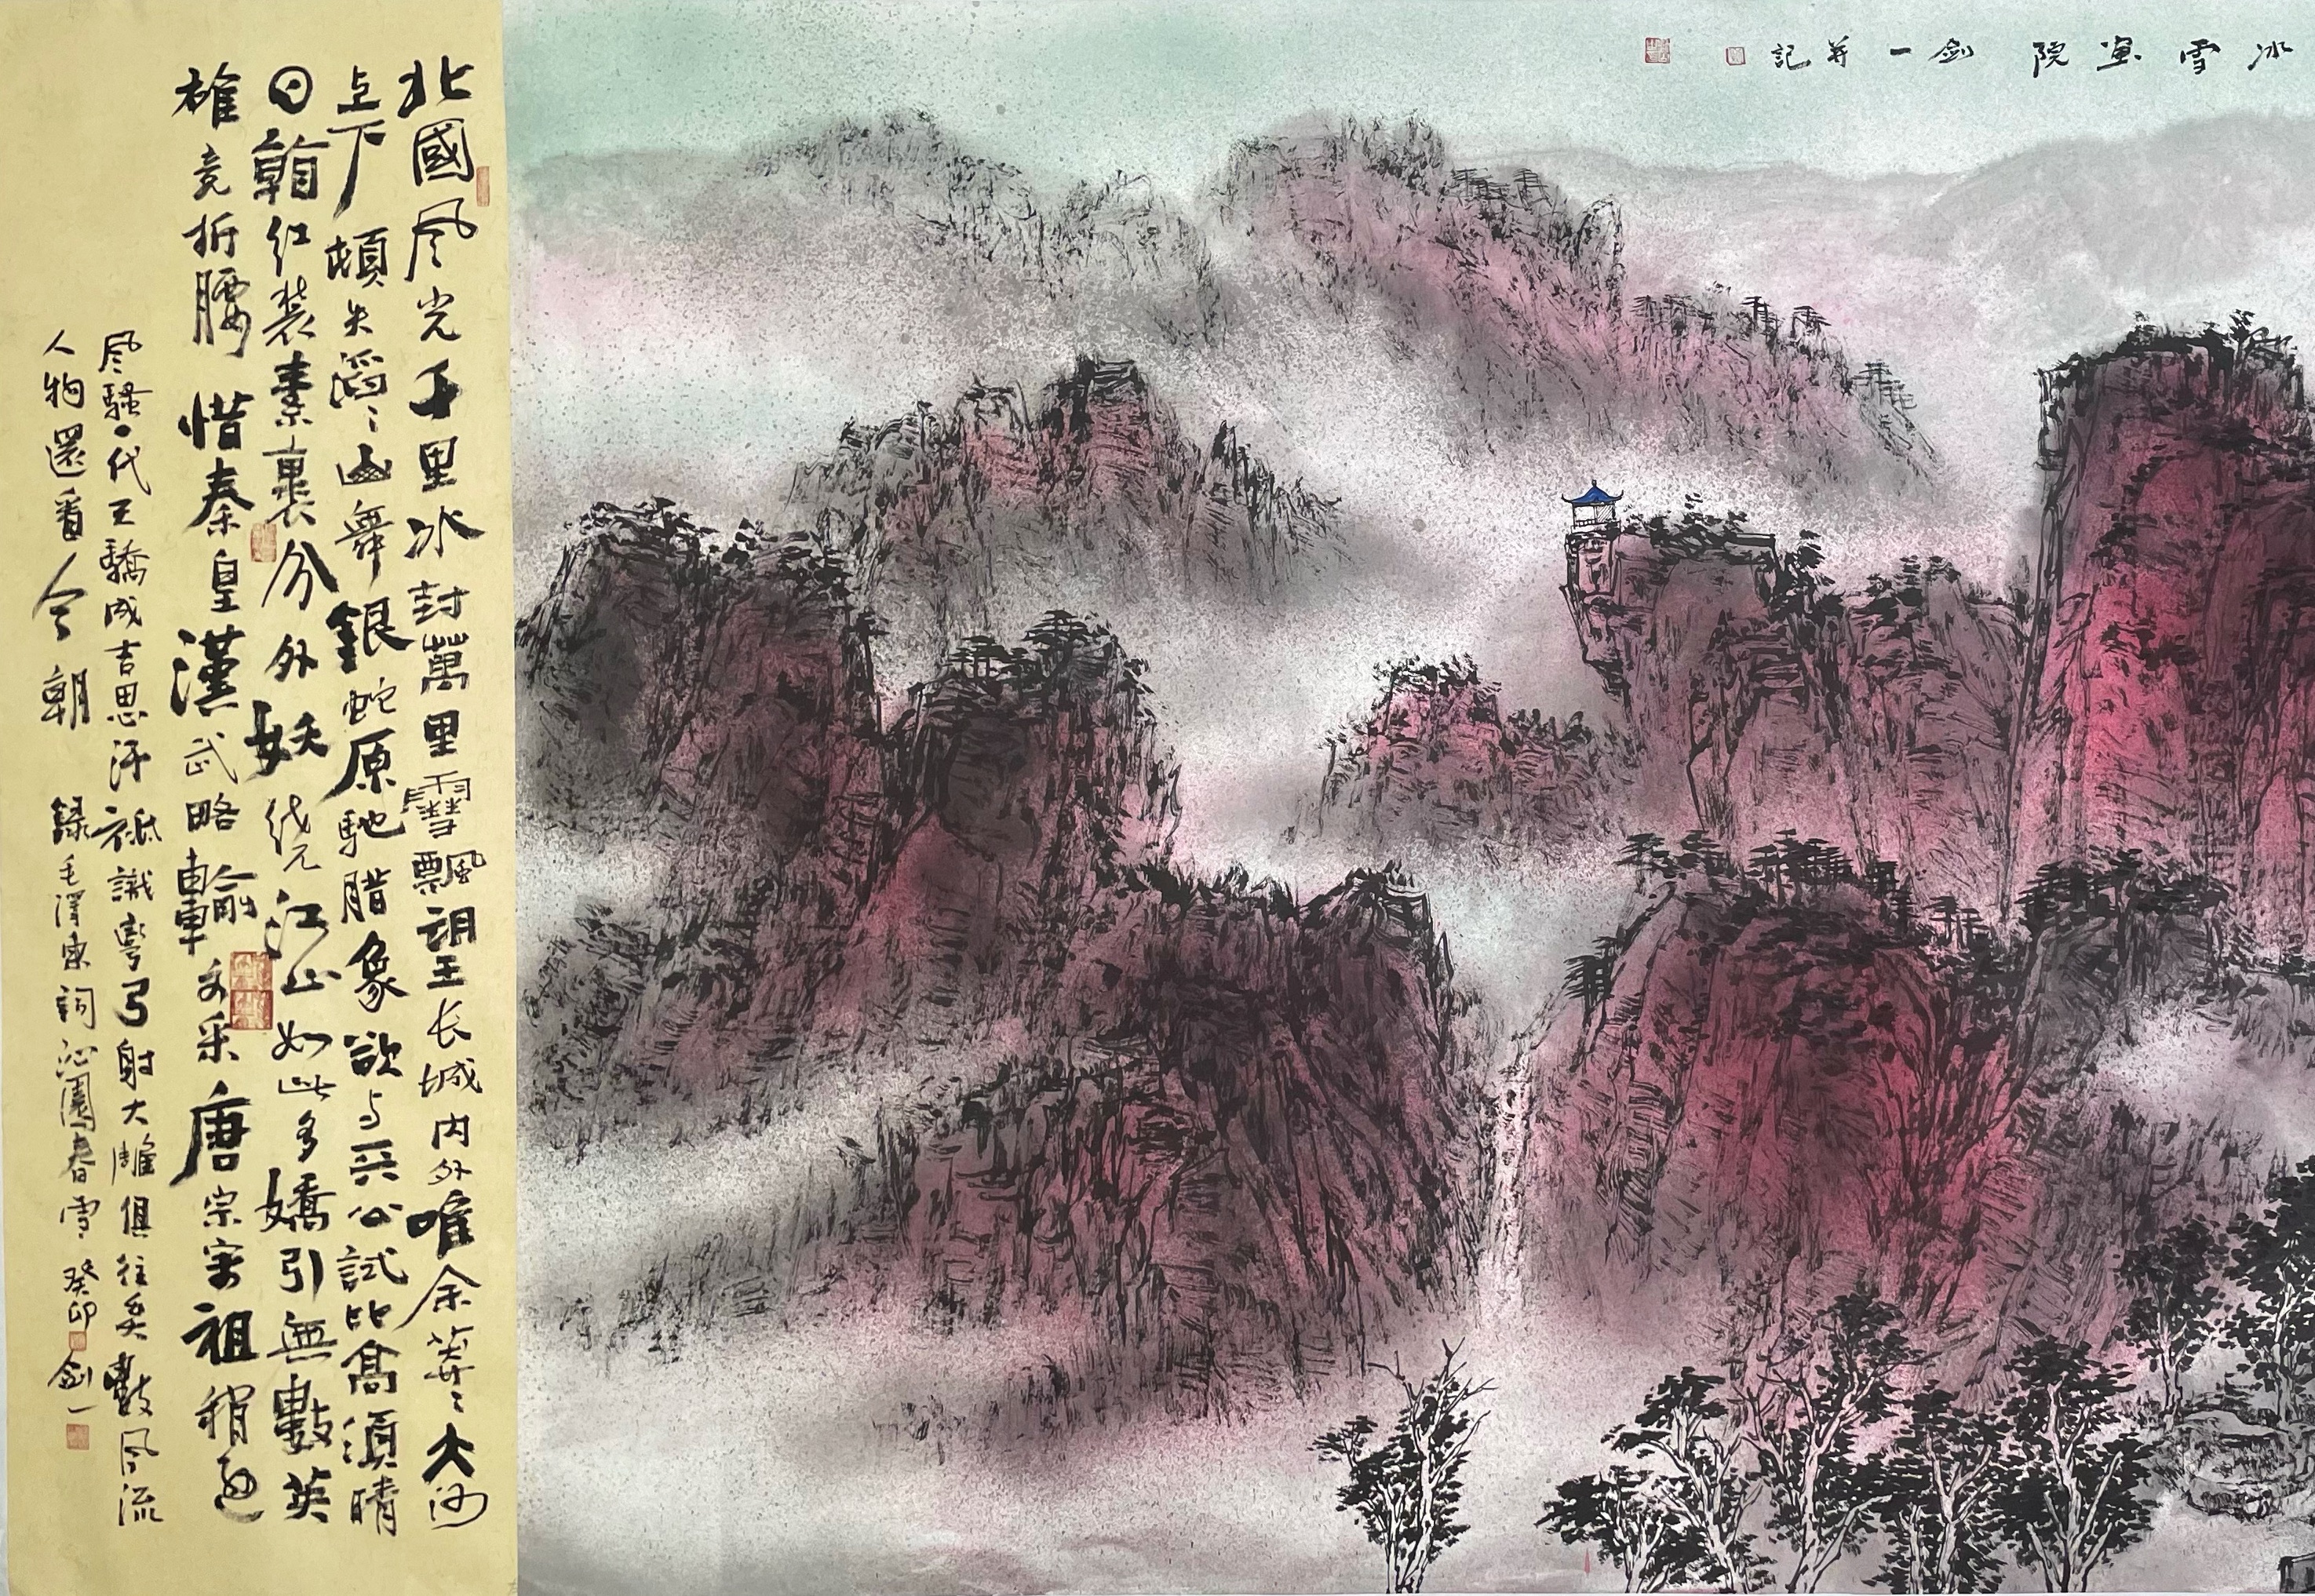 冰雪畫院 剑一并記
北國风光千里冰封萬里雪飄望长城内外唯余莽〻大河
上下頓失滔〻山舞銀蛇原馳腊象欲与天公試比高須晴
日看红装素裹分外妖绕江山如此多嬌引無數英
雄竞折腰惜秦皇漢武略輸文采唐宗宋祖稍遜
风騷一代天驕成吉思汗祗識彎弓射大雕俱往矣數风流
人物還看今朝 錄毛澤東詞沁園春雪 癸卯 剑一